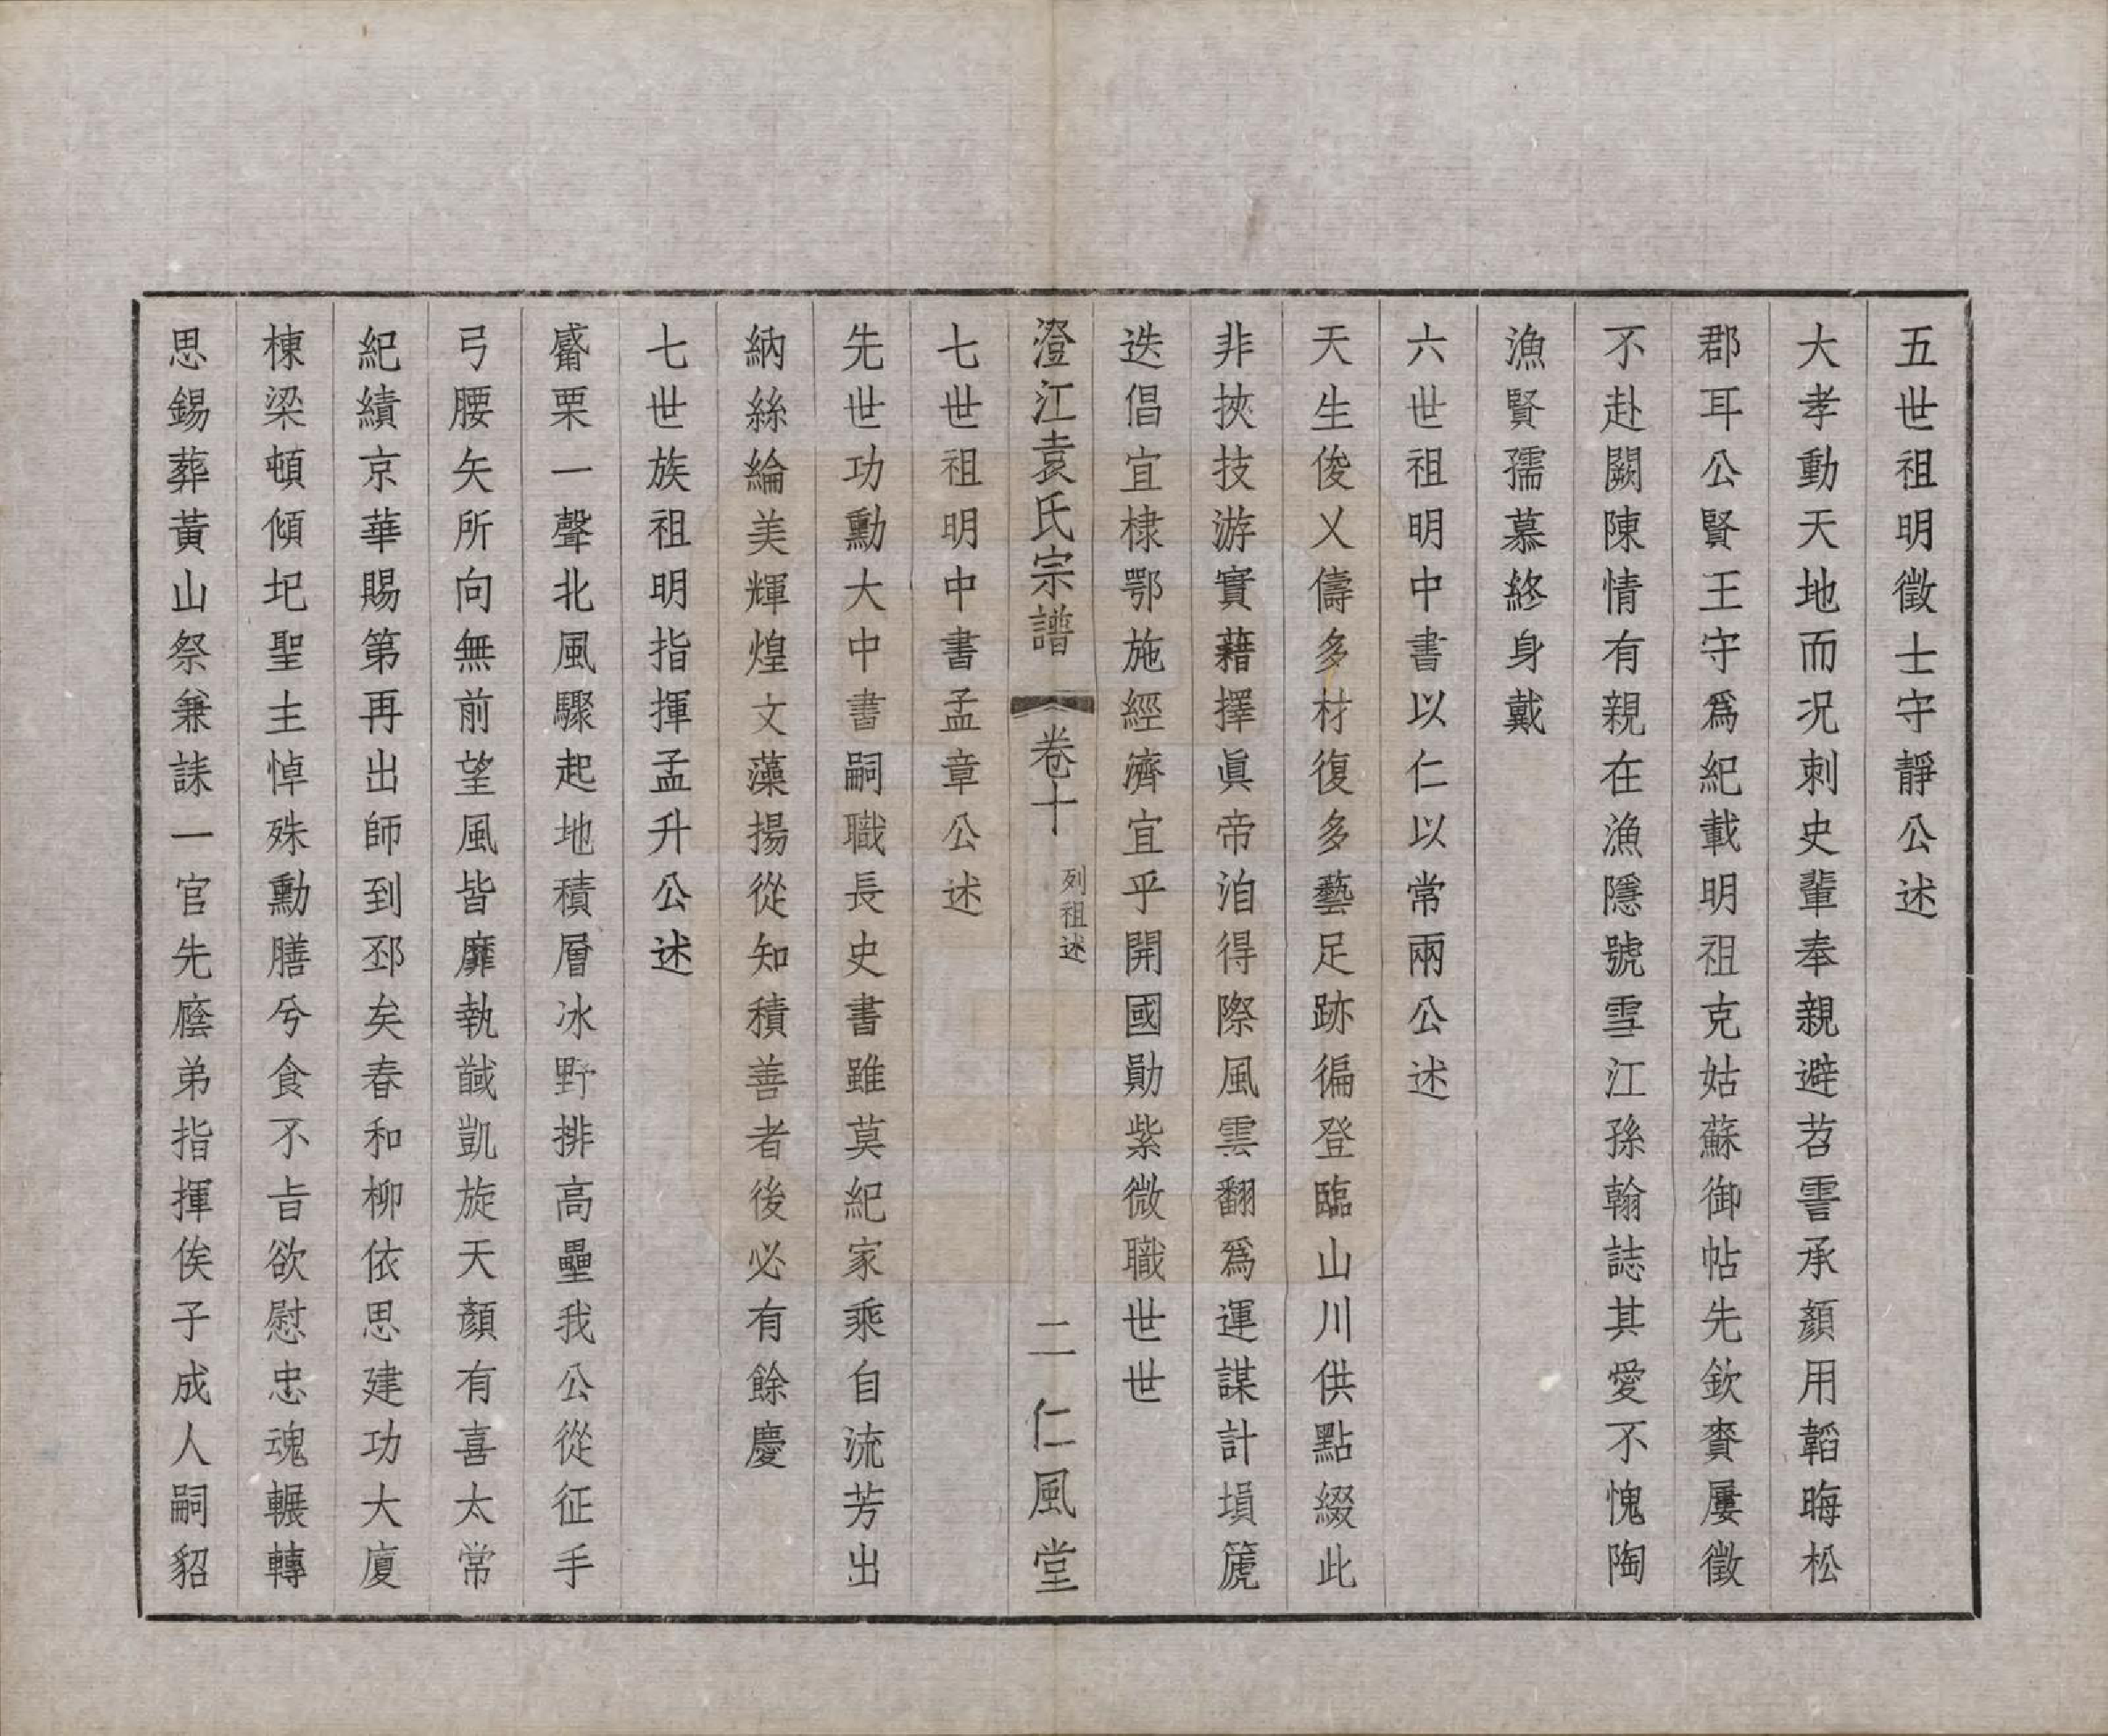 五世祖明徵士守靜公述
大孝動天地而况刺史輩奉親避苕霅承顏用韜晦松
郡耳公賢王守爲紀載明祖克姑蘇御帖先欽賫屢徵
不赴闕陳情有親在漁隱號雪江孫翰誌其愛不愧陶
漁賢孺慕終身戴
六世祖明中書以仁以常兩公述
天生俊乂儔多材復多藝足跡徧登臨山川供點綴此
非挾技游實藉擇眞帝洎得際風雲翻爲運謀計塤篪
迭倡宜棣鄂施經濟宜乎開國勛紫微職世世
澄江袁氏宗譜 卷十 列祖述 二 仁風堂
七世祖明中書孟章公述
先世功勳大中書嗣職長史書雖莫紀家乘自流芳出
納絲綸美輝煌文藻揚從知積善者後必有餘慶
七世族祖明指揮孟升公述
觱栗一聲北風驟起地積層冰野排高壘我公從征手
弓腰矢所向無前望風皆靡執馘凱旋天顏有喜太常
紀績京華賜第再出師到邳矣春和柳依思建功大廈
棟梁頓傾圯聖主悼殊勳膳兮食不旨欲慰忠魂輾轉
思錫葬黃山祭兼誄一官先廕弟指揮俟子成人嗣貂